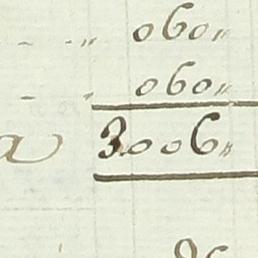 060"
060"
a 3006"